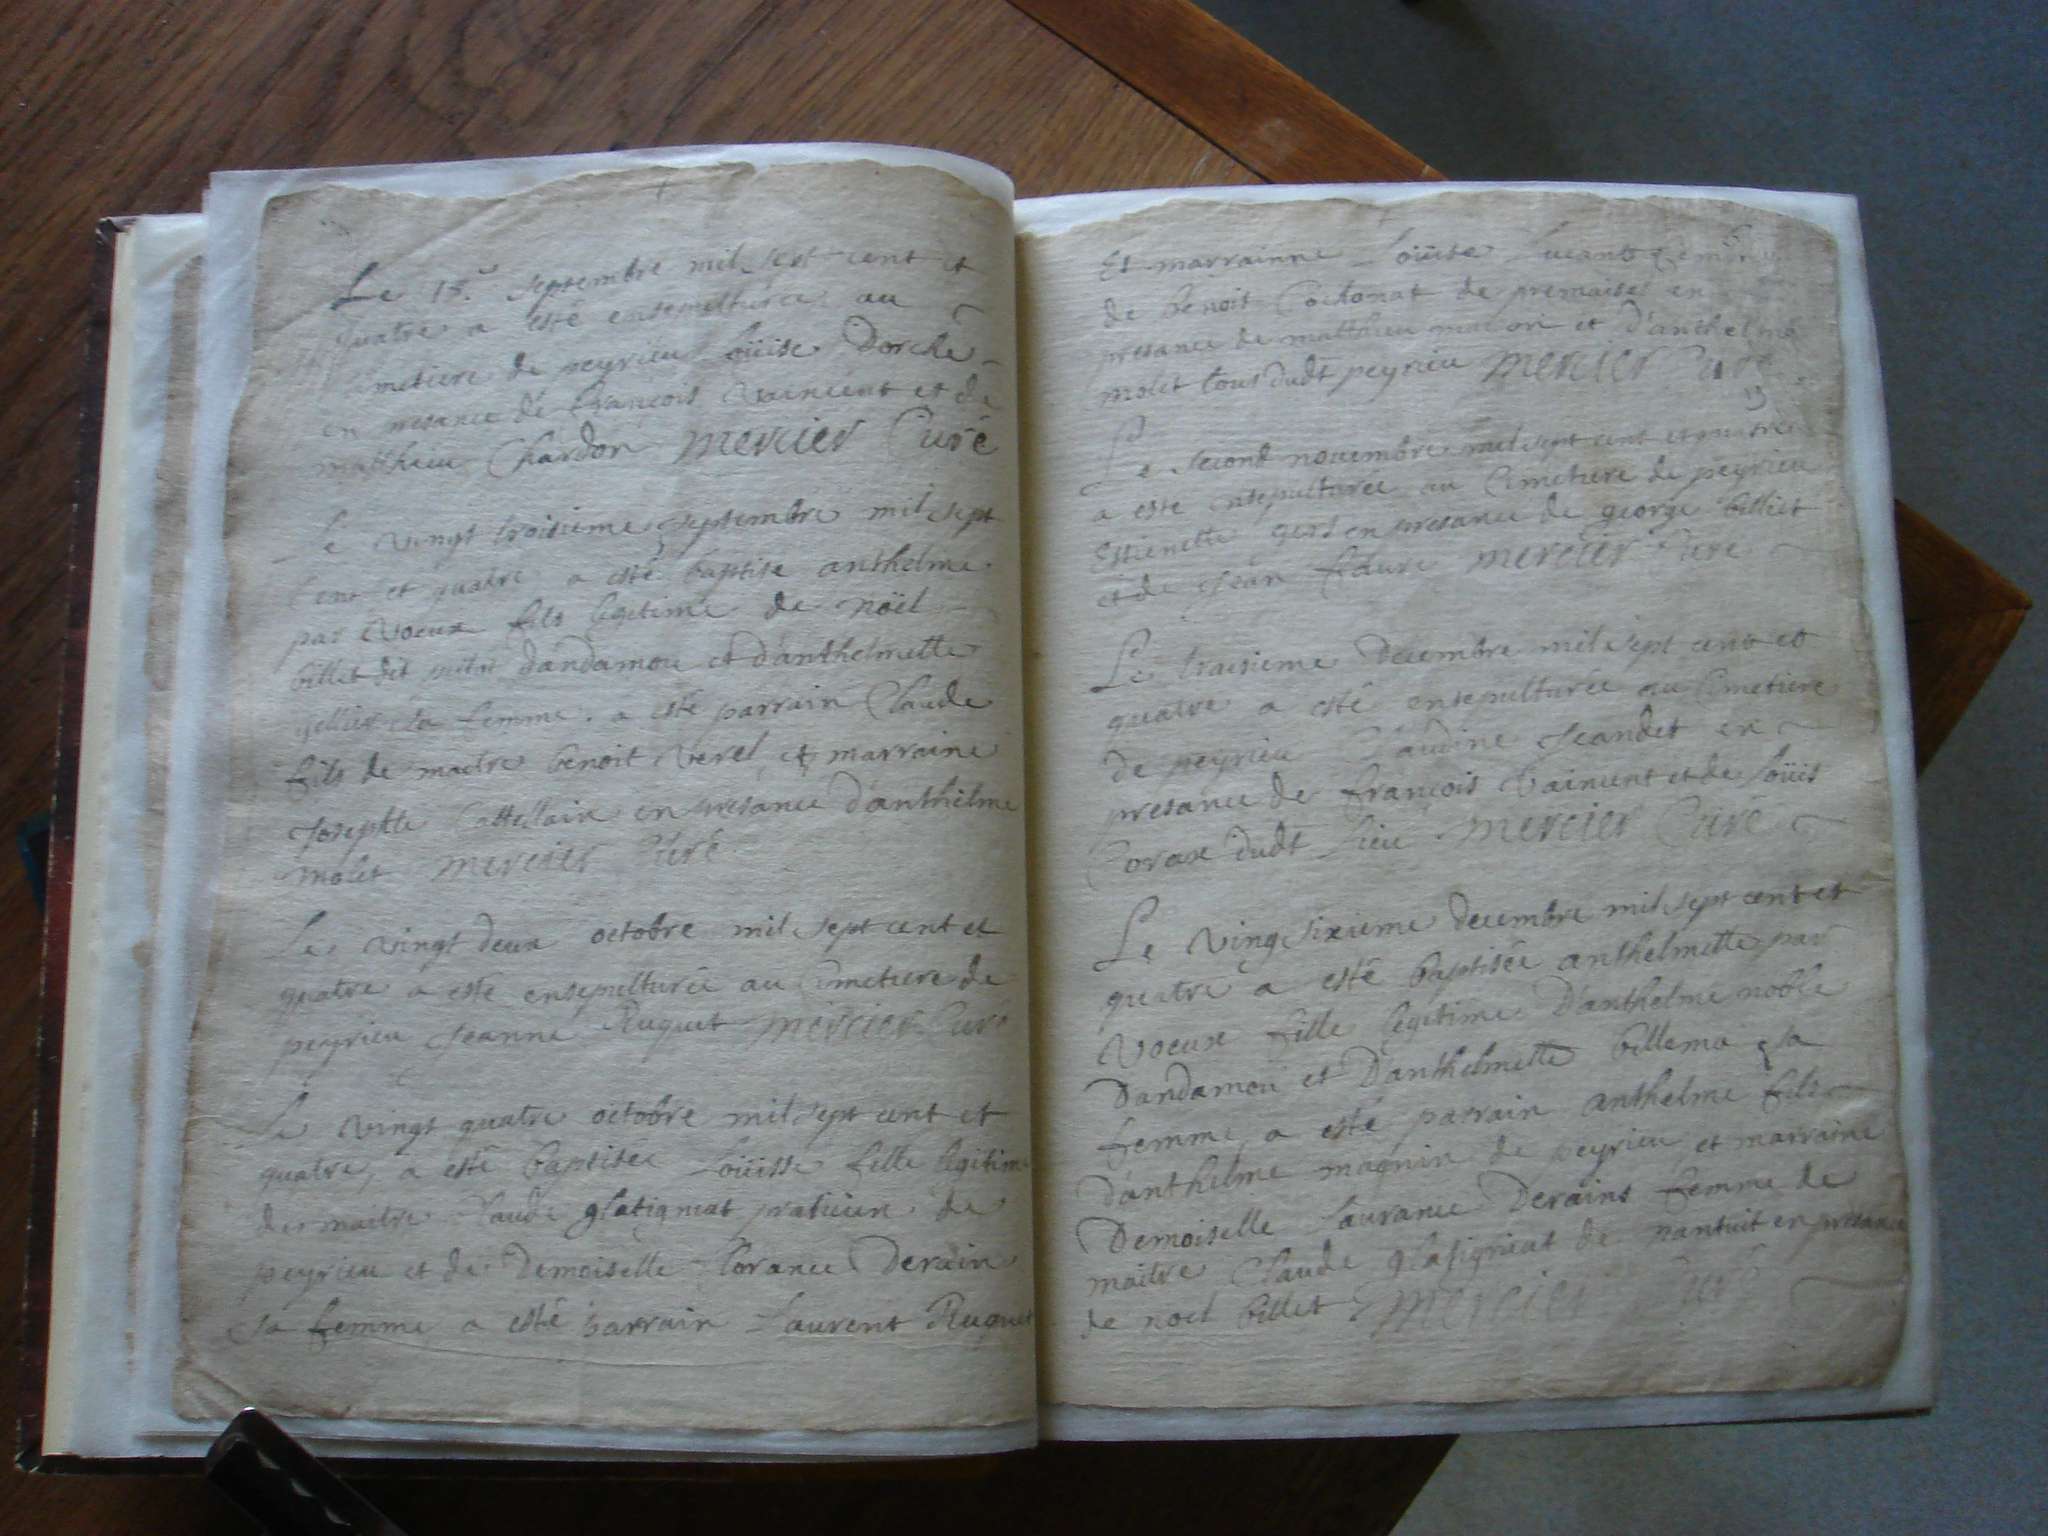 Le 15.e septembre mil sept cent et
quatre a esté ensepulturée au
metiere de peyrieu Loüise Dorche
en presance de francois Vaincent et de
matthieu Chardon mercier Curé
Le vingt troisieme septembre mil sept
Cent et quatre a esté baptise anthelme
par Voeux fils legitime de noël
billet dit dandamou et d'anthelmette
gellier sa femme. a esté parrain Claude
fils de maitre benoit Verel et marraine
Josephte Cattellain en presance d'anthelme
molet mercier Curé
Le vingt deux octobre mil sept cent et
quatre a esté ensepulturée au Cimetiere de
peyrieu Jeanne Ruguet mercier Curé
Le vingt quatre octobre mil sept cent et
quatre, a esté baptisée Loüisse fille legitime
de maitre Claude glatigniat praticien de
peyrieu et de Demoiselle Lorance Derain
sa femme a esté parrain Laurent Ruguet
Et marrainne Loüise femme
de benoit Cochonat de premaisel en
presance de matthieu et D'anthelme
molet tous dudt peyrieu mercier Curé
Le second novembre mil sept cent et quatre
a esté ensepulturée au Cimetiere de peyrieu
Estienette gers en presance de george billiet
et de Jean faure mercier Curé
Le traisieme decembre mil sept cent et
quatre a esté ensepulturée au Cimetiere
de peyrieu Claudine Jeandet en
presance de francois Vaincent et de Loüis
Corax dudt Lieu mercier Curé
Le Ving sixieme decembre mil sept cent et
quatre a esté baptisée anthelmette par
Voeux fille legitime D'anthelme noble
Dandamou et D'anthelmette billema sa
femme, a esté parrain anthelme fils
d'anthelme magnin de peyrieu et marraine
Demoiselle Laurance Derains femme de
maitre Claude glatigniat de nantuit en presance
de noel billet mercier Curé